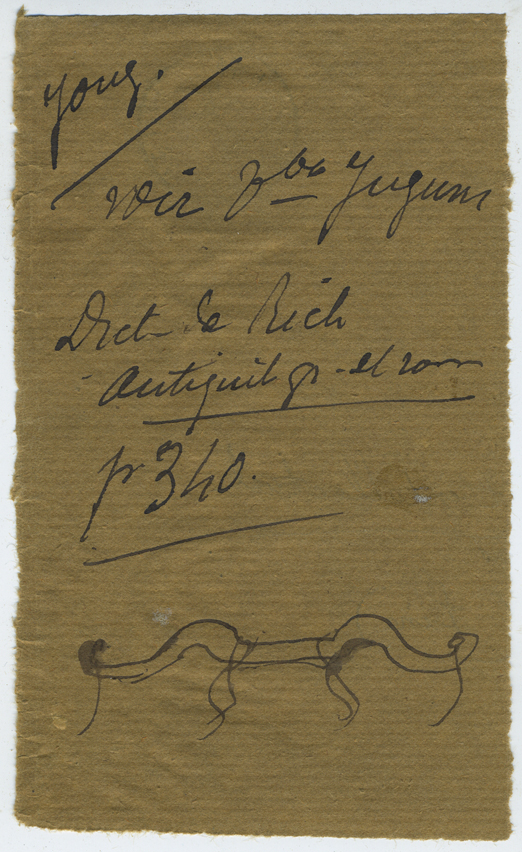 Joug.
voir Vbo Jugum
Dict de Rich
Antiquit gr - et rom
pr 340.